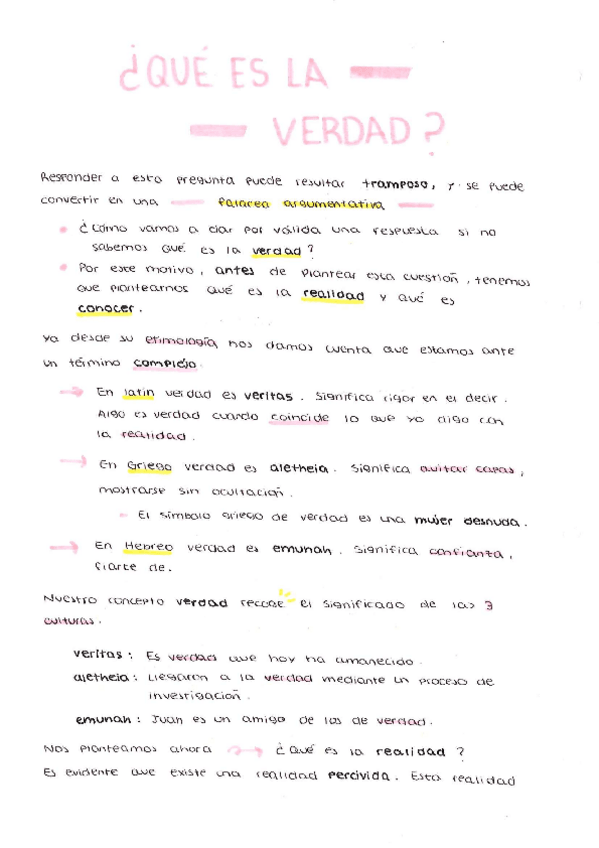 ¿QUÉ ES LA
VERDAD?
Responder a esta pregunta puede resultar tramposo, y se puede
convertir en una falacea argumentativa
¿Cómo vamos a dar por válida una respuesta si no
sabemos qué es la verdad?
Por este motivo, antes de plantear esta cuestión, tenemos
que plantearnos qué es la realidad y qué es
conocer.
Ya desde su etimología nos damos cuenta que estamos ante
un término complejo.
En latín verdad es veritas. Significa rigor en el decir.
Algo es verdad cuando coincide lo que yo digo con
la realidad.
En Griego verdad es aletheia. Significa quitar capas,
mostrarse sin ocultación.
El símbolo griego de verdad es una mujer desnuda.
En Hebreo verdad es emunah. Significa confianza,
fiarte de.
Nuestro concepto verdad recoge el significado de las 3
culturas.
veritas: Es verdad que hoy ha amanecido.
aletheia: Llegaron a la verdad mediante un proceso de
investigación.
emunah: Juan es un amigo de los de verdad.
Nos planteamos ahora ¿Qué es la realidad?
Es evidente que existe una realidad percivida. Esta realidad